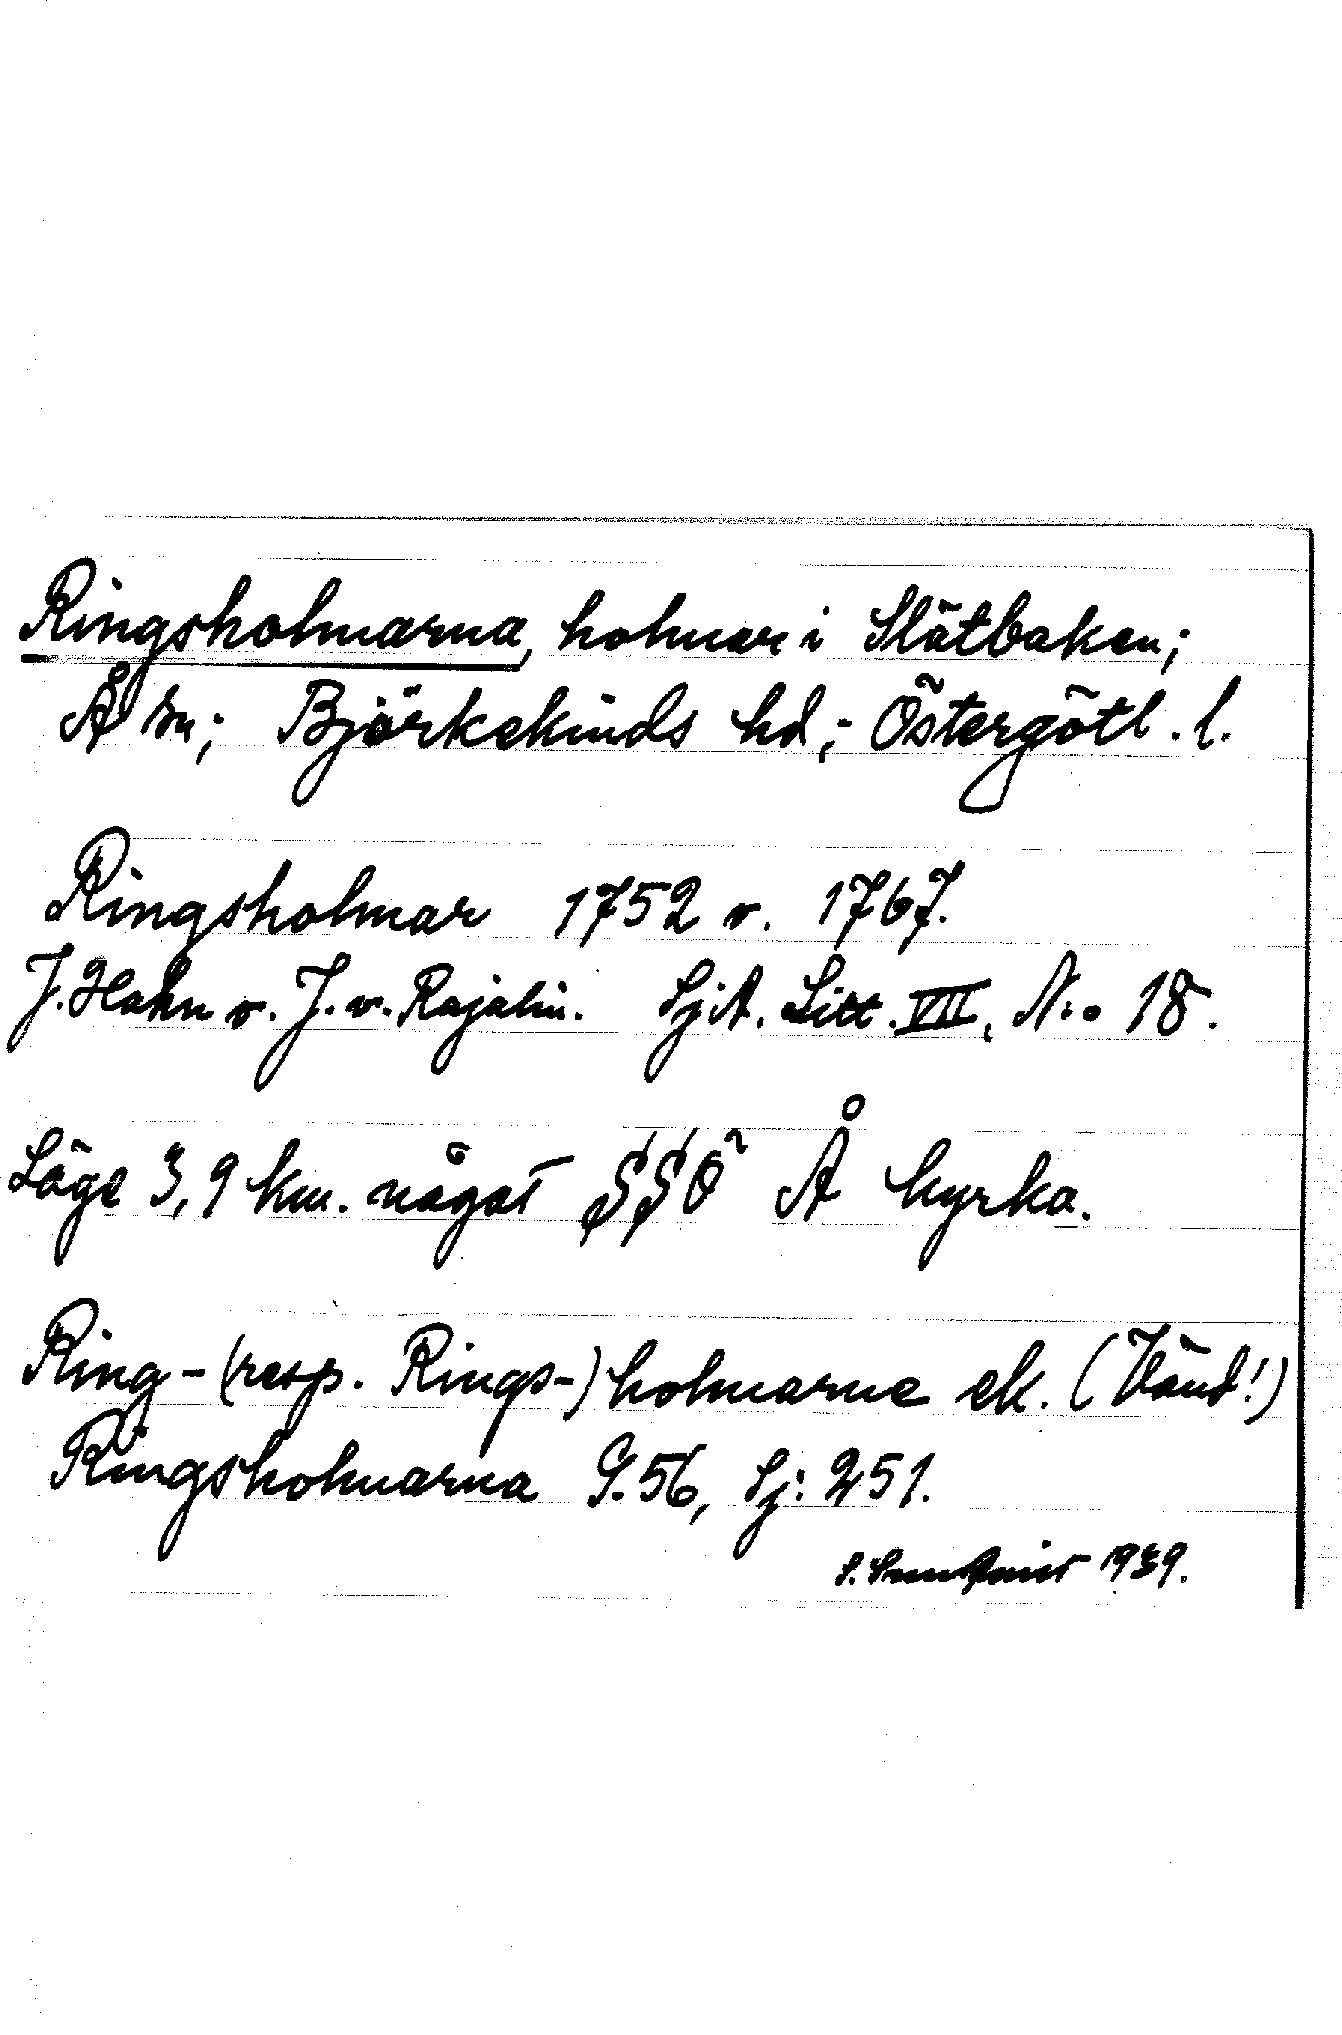 Ringsholmarna, holmar i Slätbaken;
Å sn; Björkekinds hd; Östergötl. l.
Ringsholmar 1752 o. 1767.
J. Hahn o. J. v. Rajalin. SjA. Litt. VII, N:o 18.
Läge 3,9 km. något SSÖ Å kyrka.
Ring- (resp. Rings-) holmarne ek. (Vänd!)
Ringsholmarna G. 56, Sj: 251.
1939.